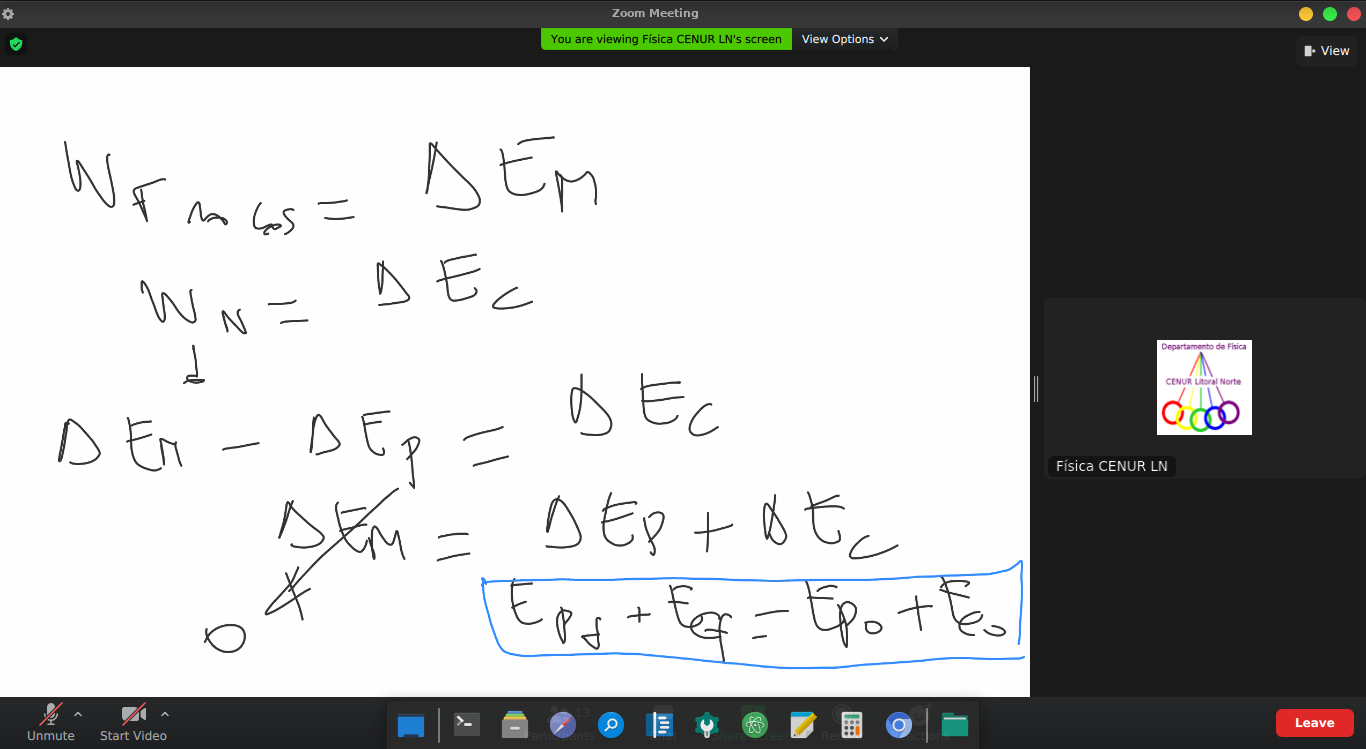 Zoom Meeting
You are viewing Física CENUR LN's screen
View Options
View
W_F no cos = ΔE_M
W_N = ΔE_c
ΔE_M - ΔE_p = ΔE_c
ΔE_M = ΔE_p + ΔE_c
0
E_pf + E_cf = E_p0 + E_c0
Departamento de Física
CENUR Litoral Norte
Física CENUR LN
Unmute
Start Video
Leave